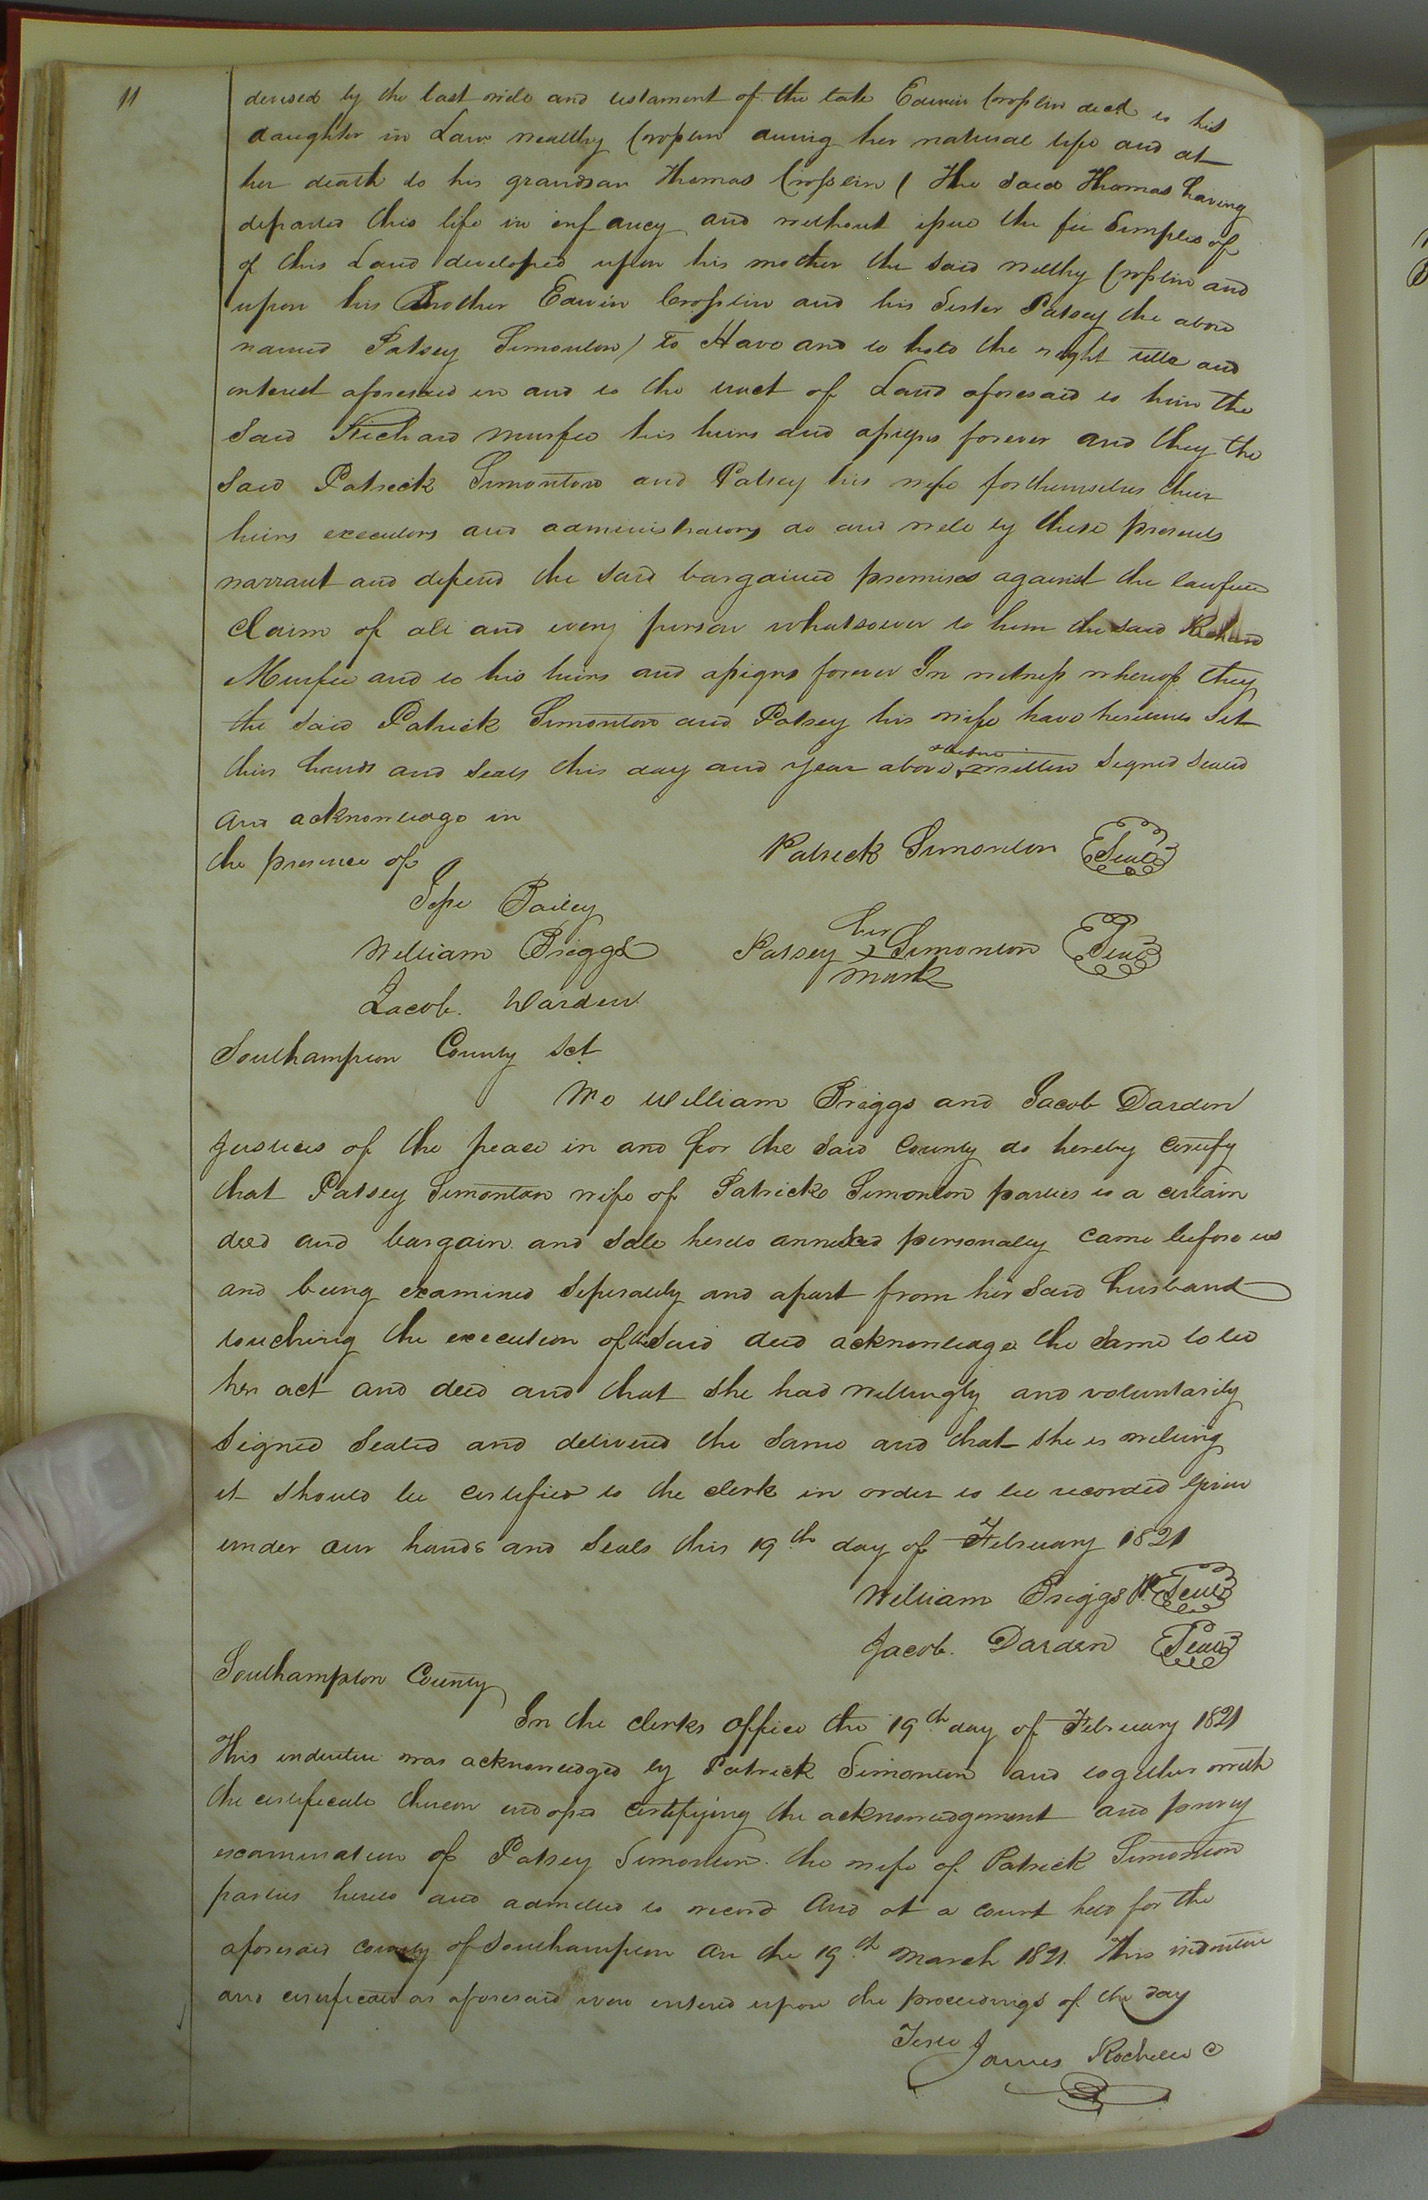 11
devised by the last wile and testament of the late Edwin Crosslin decd to his
daughter in Law wealthy Crosslin during her natural life and at
her death to his grandson Thomas Crosslin ( the said Thomas having
departed this life in infancy and without issue the fee simples of
of this Land developed upon his mother the said welthy Crosslin and
upon his Brother Edwin Crosslin and his Sister Patsey the above
named Patsey Simonton ) to Have and to hold the right title and
interest aforesaid in and to the tract of Land aforesaid to him the
said Richard murfee his heirs and assigns forever and they the
said Patrick Simonton and Patsey his wife for themselves their
heirs executors and administrators do and wile by these presents
warrant and defend the said bargained premises against the lawfull
claim of all and every person whatsoever to him the said Richard
Murfee and to his heirs and assigns forever In witness whereof they
the said Patrick Simonton and Patsey his wife have hereunto set
their hands and seals this day and year above written Signed sealed
and acknowledge in
the presence of
Patrick Simonton Seal
Jesse Bailey
William Briggs
her
Patsey x Simonton Seal
mark
Jacob. Darden
Southampton County Sct
We William Briggs and Jacob Darden
Justices of the peace in and for the said County do hereby certify
that Patsey Simonton wife of Patrick Simonton parties to a certain
deed and bargain and sale hereto annexed personally came before us
and being examined seperately and apart from her said husband
touching the execution of the said deed acknowledge the same to be
her act and deed and that she had willingly and voluntarily
signed sealed and delivered the same and that she is willing
it should be certified to the clerk in order to be recorded given
under our hands and seals this 19th day of February 1821
William Briggs Seal
Jacob. Darden Seal
Southampton County
In the clerks office the 19th day of February 1821
This indenture was acknowledged by Patrick Simonton and together with
the certificate thereon endorsd certifying the acknowledgement and privy
examination of Patsey Simonton the wife of Patrick Simonton
parties hereto and admitted to record And at a court held for the
aforesaid county of Southampton on the 19th March 1821. This indenture
and certificate as aforesaid were entered upon the proceedings of the day
Teste James Rochelle C